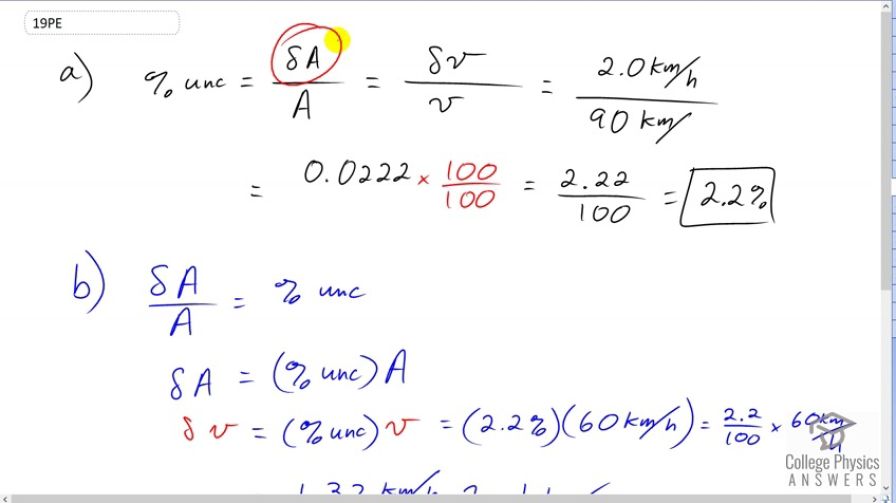 19PE
a) % unc = δA/A = δv/v = 2.0 km/h / 90 km/
= 0.0222 × 100/100 = 2.22/100 = 2.2%
b) δA/A = % unc
δA = (% unc) A
δv = (% unc) v = (2.2%)(60 km/h) = 2.2/100 × 60 km/H
College Physics
ANSWERS